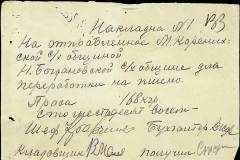 Накладна №1
На отправленное М. Корених-
ской с/х общиной
Н. Богдановской с/х общине для
переработки на пшено.
Проса 168 кгр
сто шестьдесят восем
Шеф Бухгалтер
Кладовщик получил